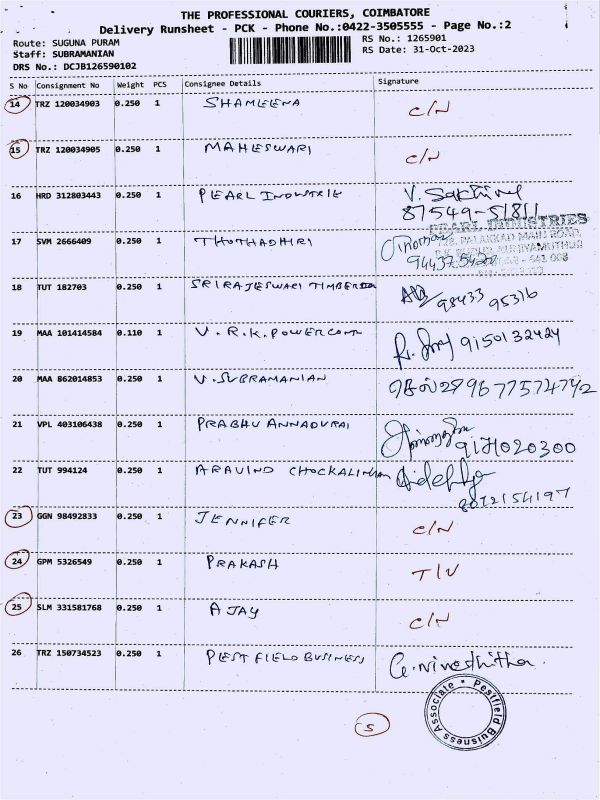 THE PROFESSIONAL COURIERS, COIMBATORE
Delivery Runsheet - PCK - Phone No.:0422-3505555 - Page No.:2
Route: SUGUNA PURAM RS No.: 1265901
Staff: SUBRAMANIAN RS Date: 31-Oct-2023
DRS No.: DCJB126590102
S No Consignment No Weight PCS Consignee Details Signature
14 TRZ 120034903 0.250 1 SHAMLEENA C/N
15 TRZ 120034905 0.250 1 MAHESWARI C/N
16 HRD 312803443 0.250 1 PEARL INDUSTRIE V. Sakthivel
87549-51811
PEARL INDUSTRIES
PALAKKAD MAIN ROAD,
KUNIYAMUTHUR
641 008
17 SVM 2666409 0.250 1 THOTHADHIRI
18 TUT 182703 0.250 1 SRI RAJESWARI TIMBER 98433 95316
19 MAA 101414584 0.110 1 V.R.K. POWER CONTR 9150132424
20 MAA 862014853 0.250 1 V. SUBRAMANIAN 9677574742
21 VPL 403106438 0.250 1 PRABHU ANNADURAI 9171020300
22 TUT 994124 0.250 1 ARAVIND CHOCKALINHAM
8072154197
23 GGN 98492833 0.250 1 JENNIFER C/N
24 GPM 5326549 0.250 1 PRAKASH T/V
25 SLM 331581768 0.250 1 AJAY C/N
26 TRZ 150734523 0.250 1 PEST FIELD BUSINESS G. Nivesthitha
Pestfield Buisness Associate
5